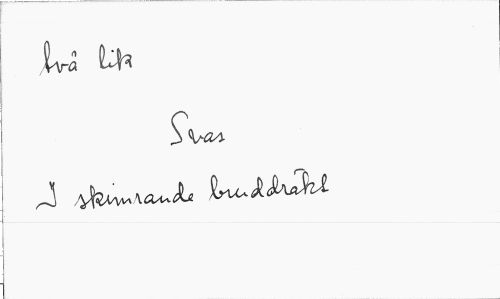 två lik
Svas
I skimrande bruddräkt